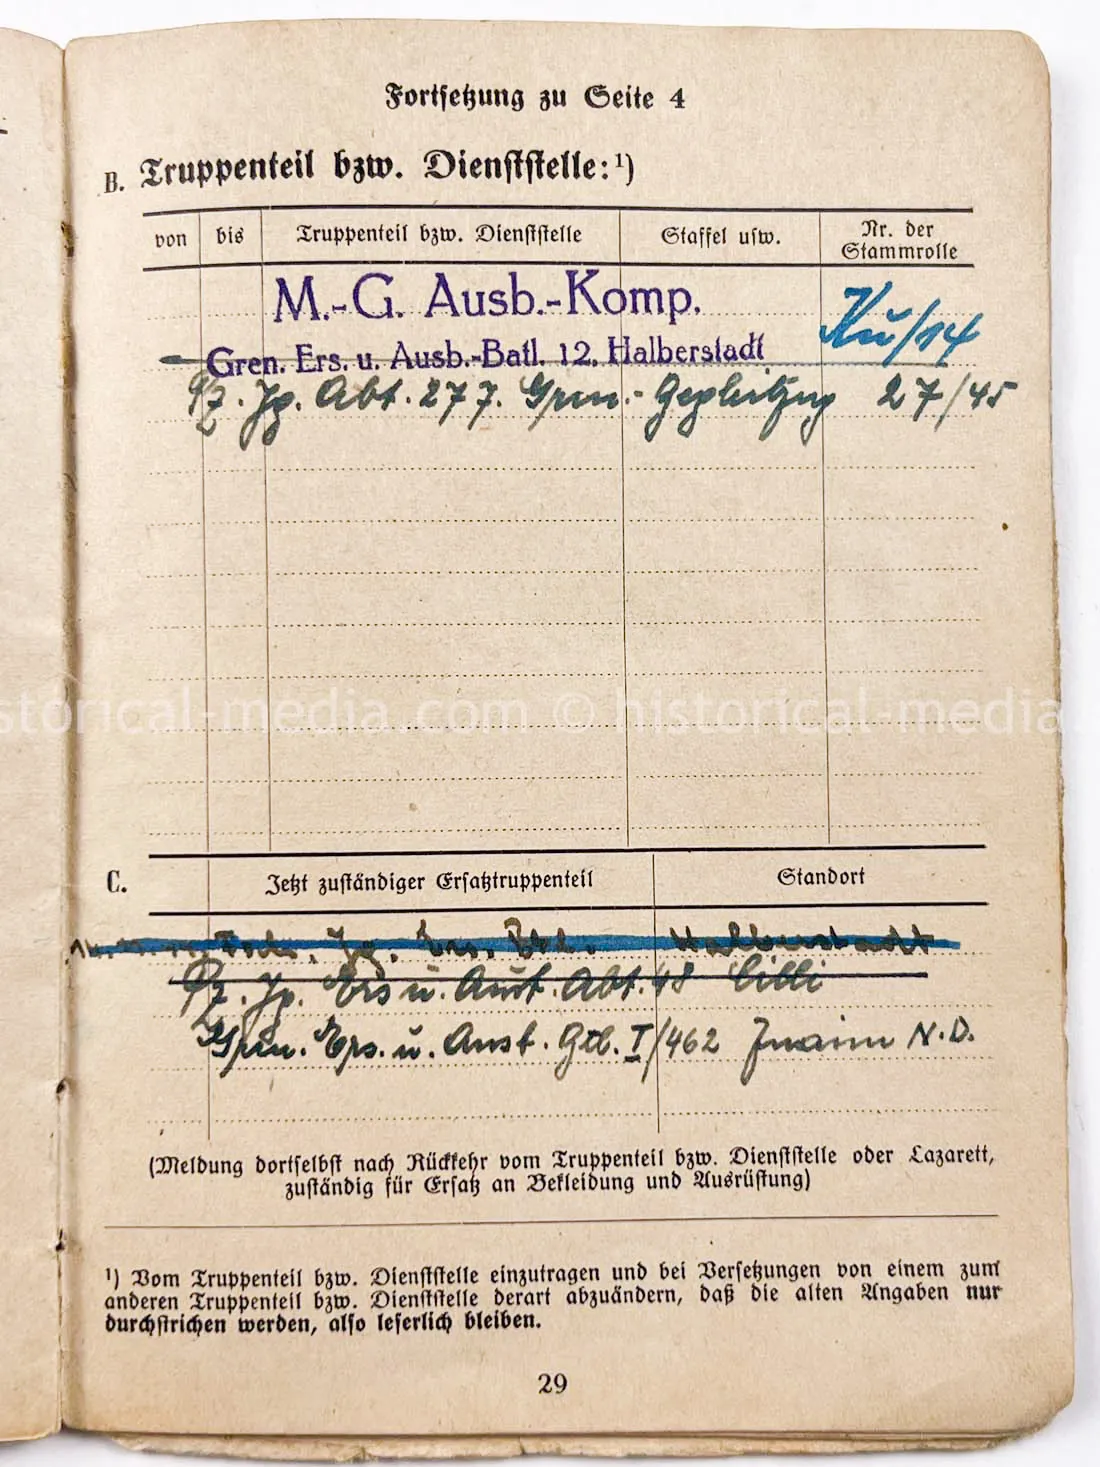 Fortsetzung zu Seite 4
B. Truppenteil bzw. Dienststelle:¹)
von bis Truppenteil bzw. Dienststelle Staffel usw. Nr. der Stammrolle
M.-G. Ausb.-Komp.
Gren. Ers. u. Ausb.-Batl. 12, Halberstadt Ku/14
Pz. Jg. Abt. 277. Gren.- 27/45
C. Jetzt zuständiger Ersatztruppenteil Standort
Jg. Ers. Btl. Halberstadt
Pz. Jg. Ers u. Ausb. Abt. 48 Cilli
Gren. Ers. u. Ausb. Btl. I/462 Znaim N.D.
(Meldung dortselbst nach Rückkehr vom Truppenteil bzw. Dienststelle oder Lazarett,
zuständig für Ersatz an Bekleidung und Ausrüstung)
¹) Vom Truppenteil bzw. Dienststelle einzutragen und bei Versetzungen von einem zum
anderen Truppenteil bzw. Dienststelle derart abzuändern, daß die alten Angaben nur
durchstrichen werden, also leserlich bleiben.
29
historical-media.com © historical-media